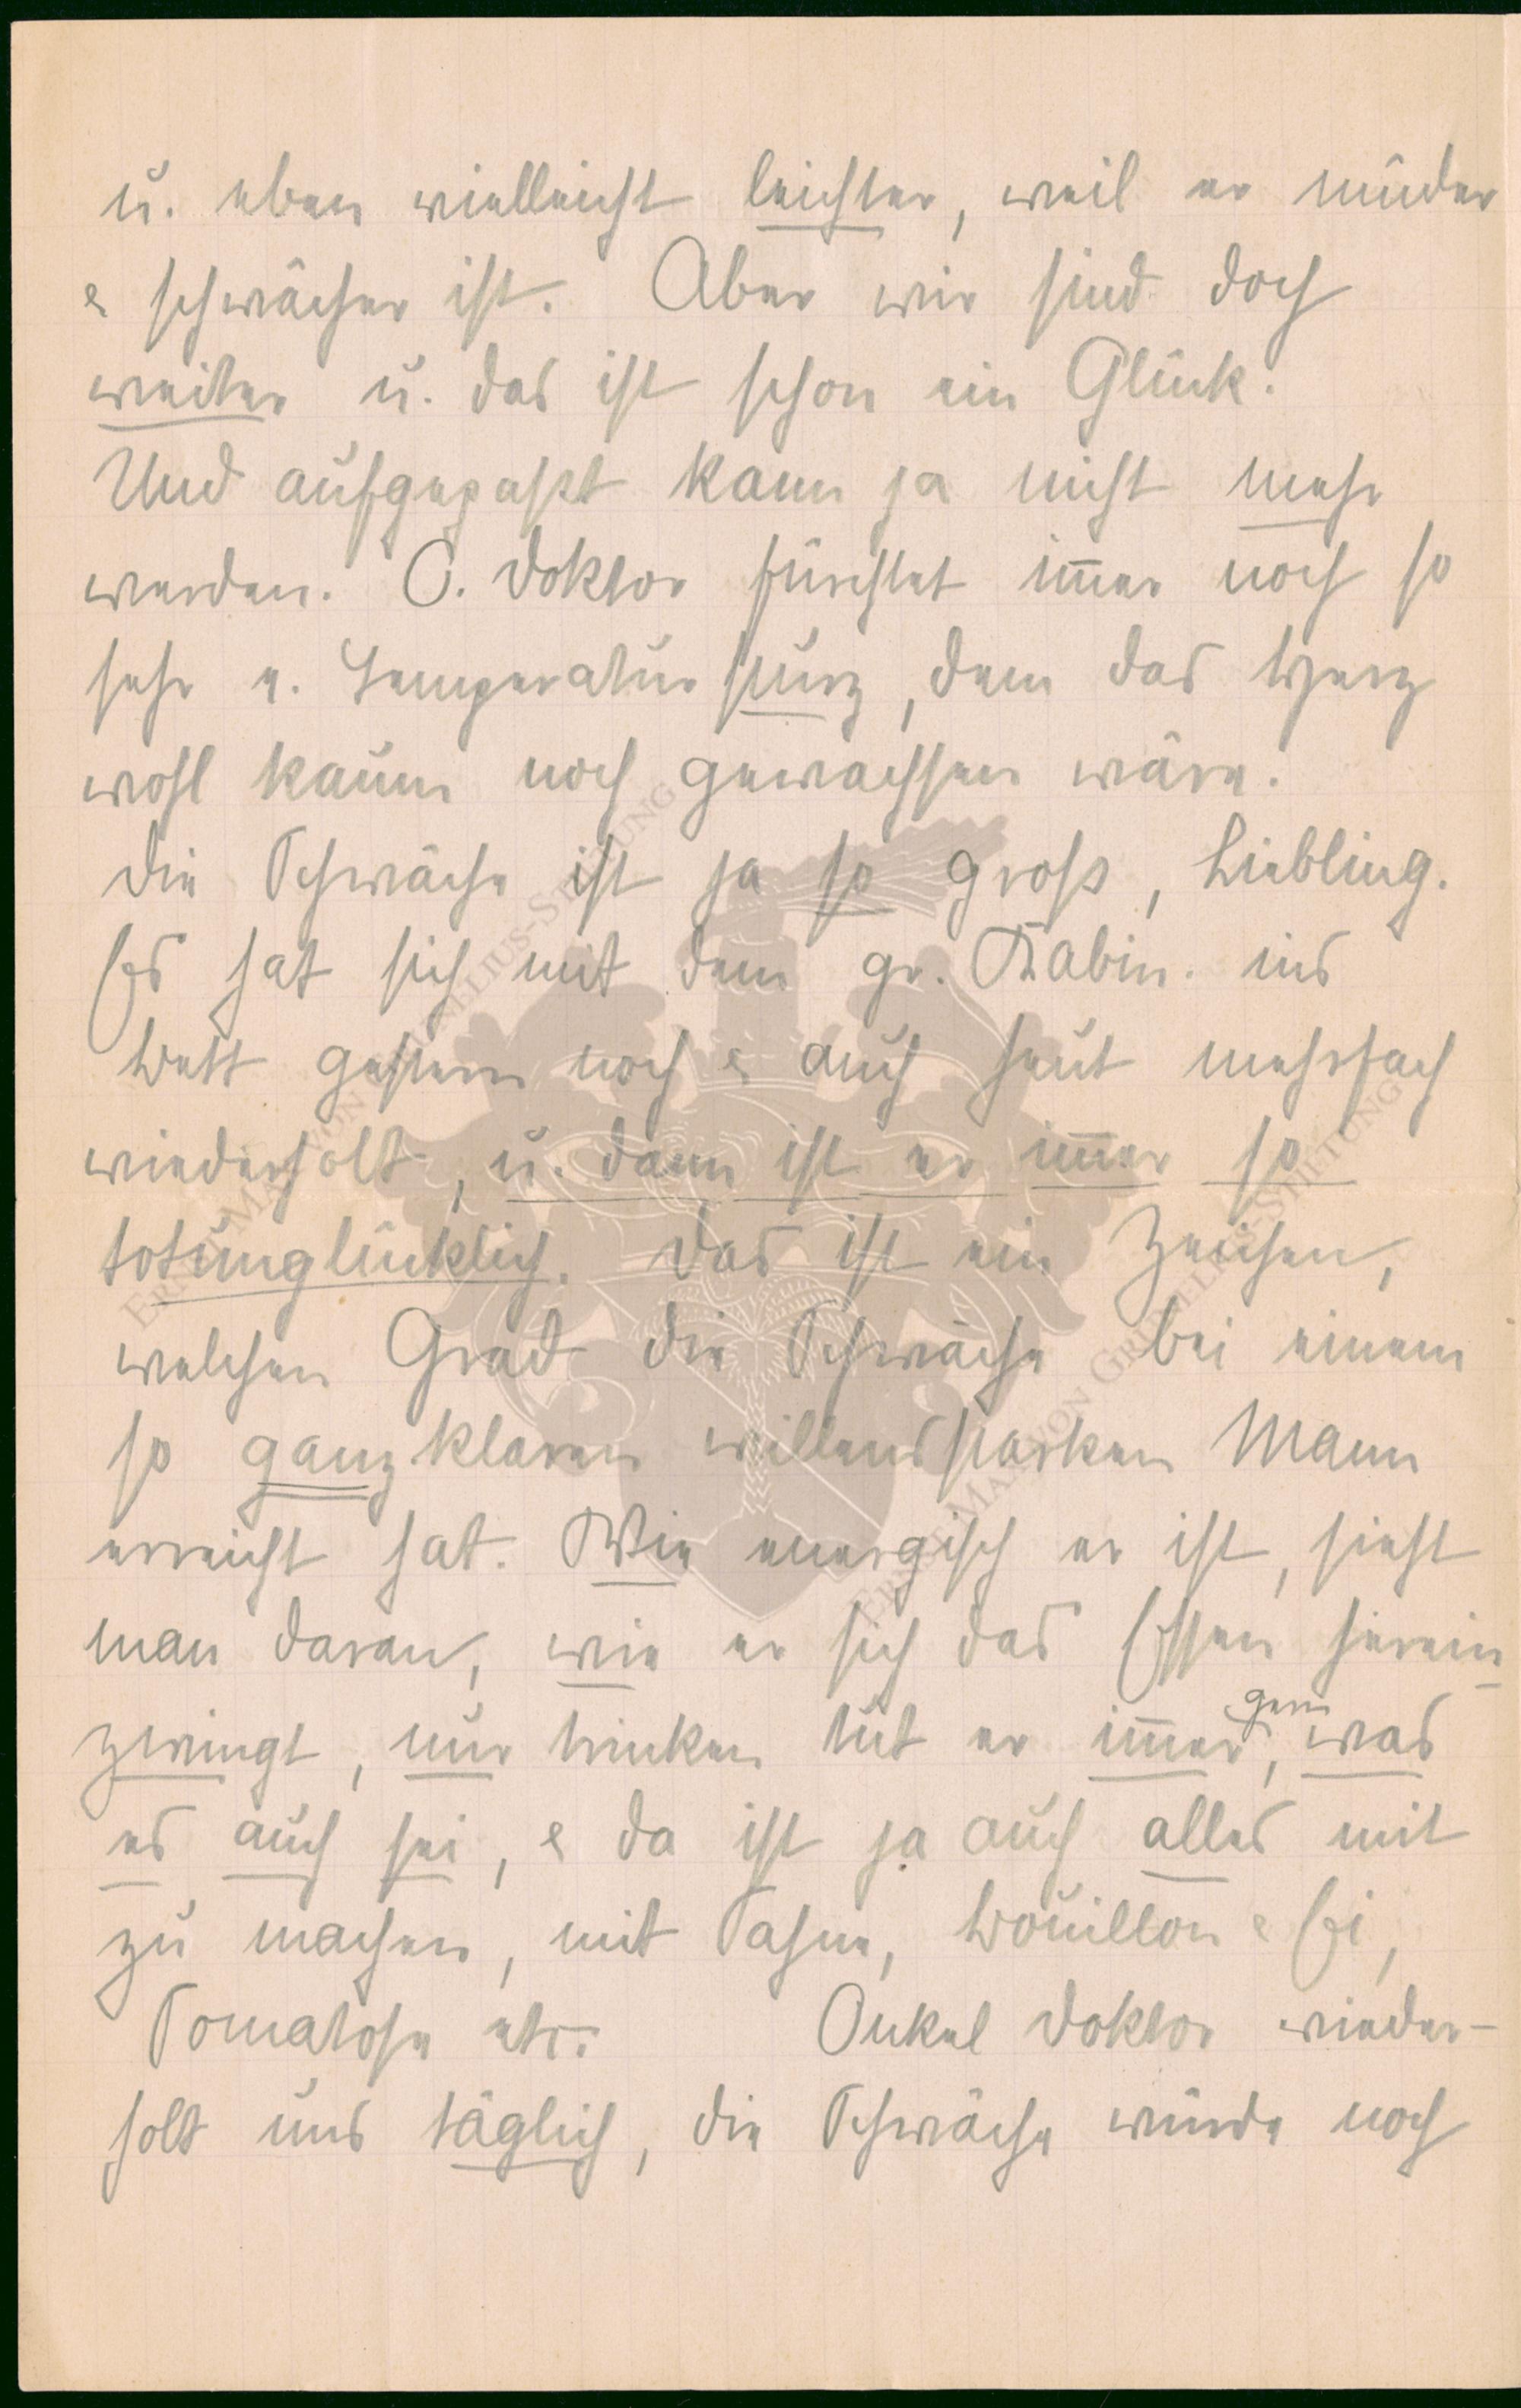 u. eben vielleicht leichter, weil er müder
& schwächer ist. Aber wir sind doch
weiter u. das ist schon ein Glück.
Und aufgepaßt kann ja nicht mehr
werden. O. Doktor fürchtet im̅er noch so
sehr e. Temperatursturz, dem das Herz
wohl kaum noch gewachsen wäre.
Die Schwäche ist ja so gross, Liebling.
Es hat sich mit dem gr. Kabin. ins
Bett gestern noch & auch heut mehrfach
wiederholt, u. dann ist er im̅er so
totunglücklich. Das ist ein Zeichen,
welchen Grad die Schwäche bei einem
so ganz klaren willensstarken Mann
erreicht hat. Wie energisch er ist, sieht
man daran, wie er sich das Essen herein
zwingt, nur trinken tut er im̅er gern, was
es auch sei, & da ist ja auch alles mit
zu machen, mit Sahne, Bouillon & Ei,
Somatose etc. Onkel Doktor wieder-
holt uns täglich, die Schwäche würde noch
ERNST MAX VON GRUNELIUS-STIFTUNG
ERNST MAX VON GRUNELIUS-STIFTUNG